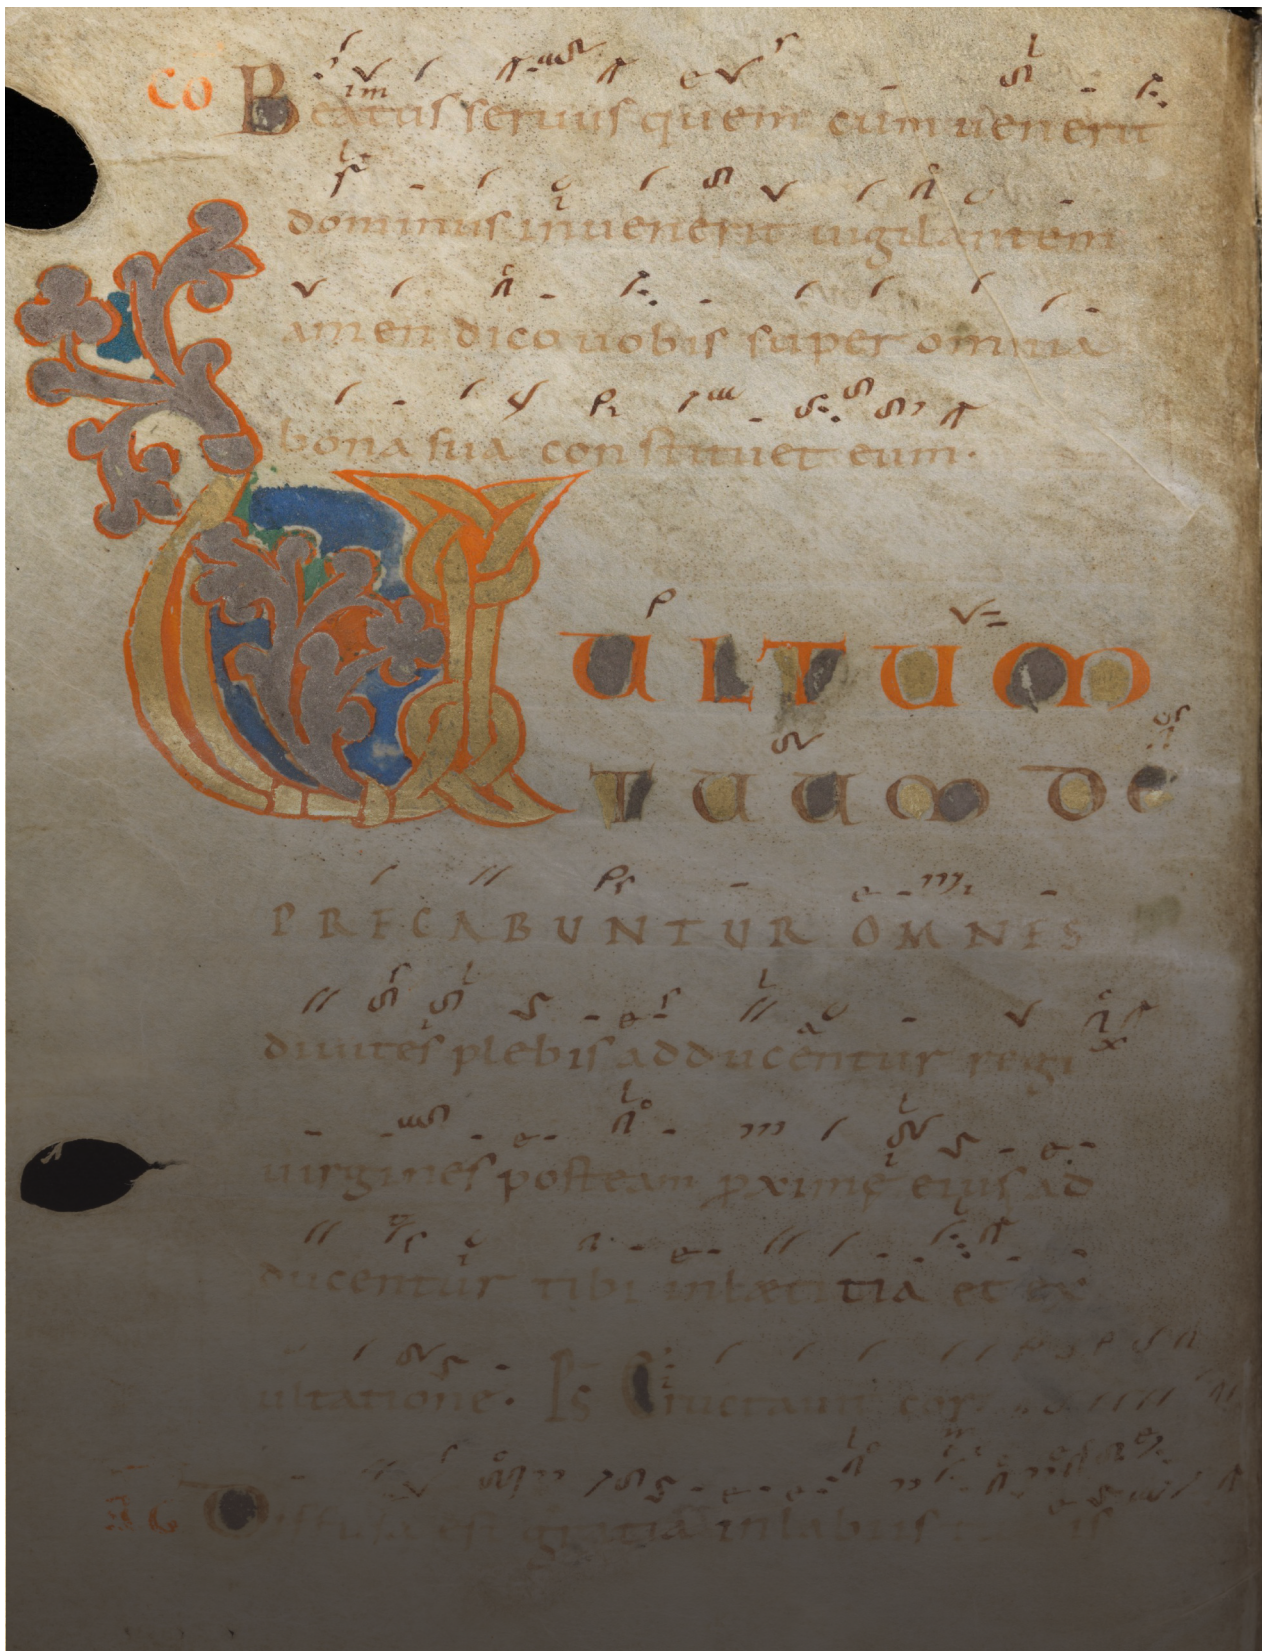 CO Beatus seruus quem cum uenerit
dominus inuenerit uigilantem
amen dico uobis super omnia
bona sua constituet eum·
UULTUM
TUUM DE
PRECABUNTUR OMNES
diuites plebis adducentur regi
uirgines posteam proxime eius ad
ducentur tibi inlaeticia et ex
ultatione· Ps Eructauit cor
GR Diffusa est gratia inlabiis tuis